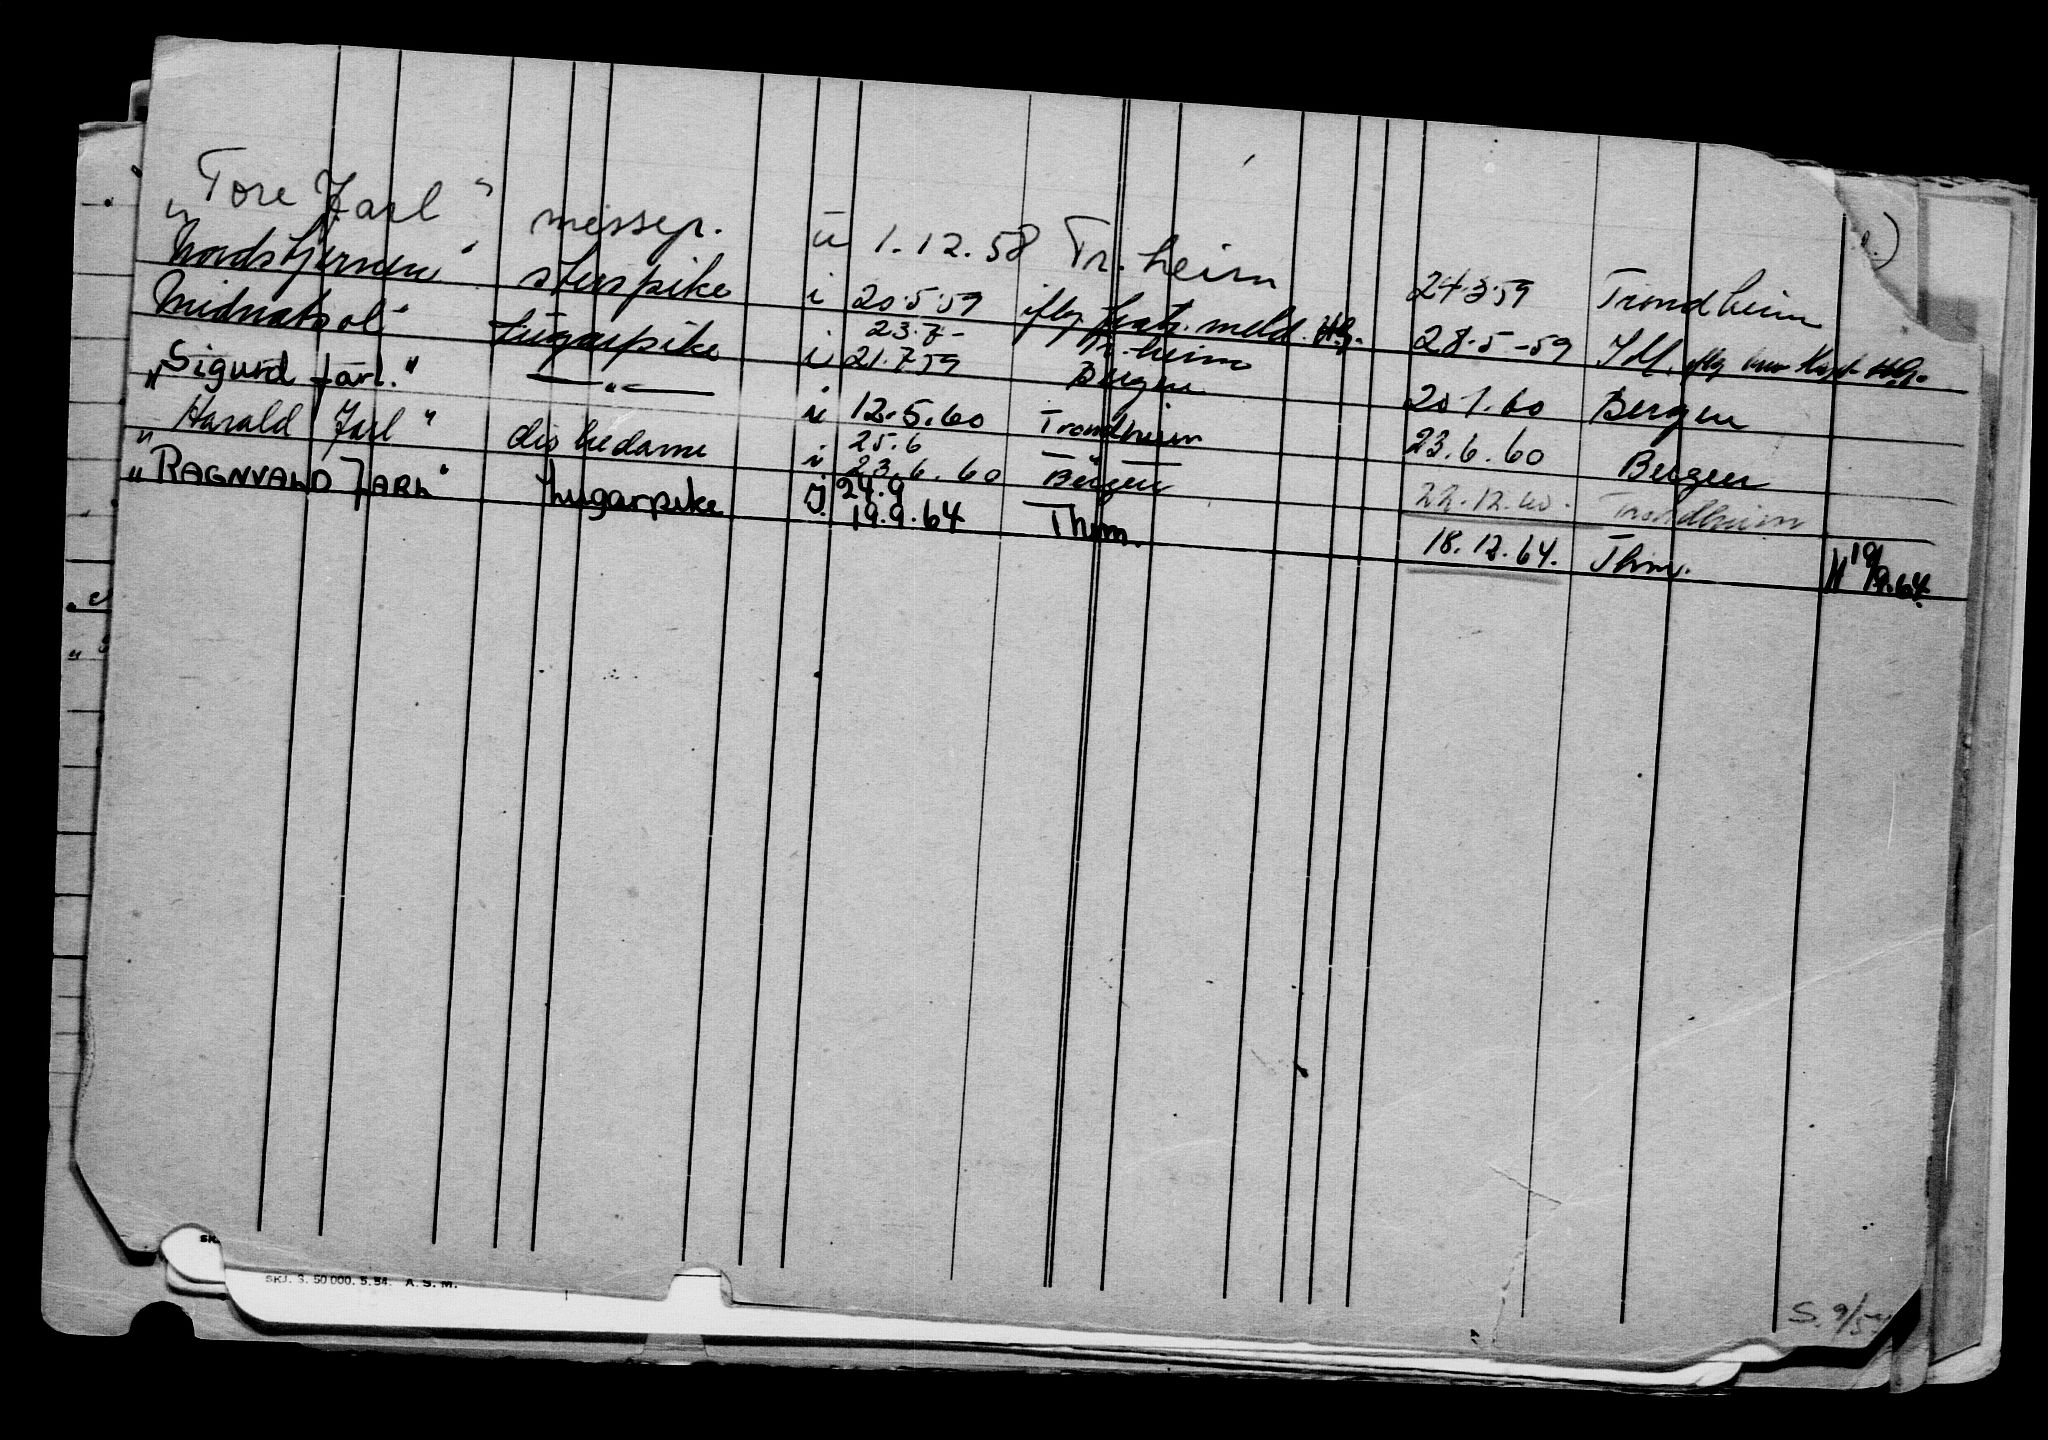 "Tore Jarl" messep. u 1.12.58 Tr.heim 24.3.59 Trondheim
"Nordstjernen" i 20.5.59 iflg meld. 28.5-59
23.7-
"Midnatsol" Lugarpike i 21.7.59 Tr.heim Bergen 20.1.60 Bergen
"Sigurd Jarl." —"— u 12.5.60 Trondheim 23.6.60 Bergen
25.6 —"—
"Harald Jarl" diskedame i 23.6.60 Bergen 22.12.60. Trondheim
24.9
"RAGNVALD JARL" Lugarpike J. 19.9.64 Thm. 18.12.64. Thm. 19/9.64.
SKJ. 3. 50 000. 5.54. A. S. M.
S. 9/54